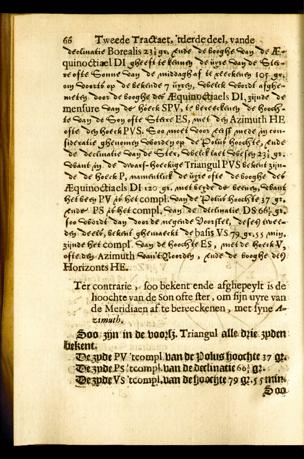 66 Tweede Tractaet, 'tderde deel, vande
declinatie Borealis 23½ gr. ende de booghe van de Æ-
quinoctiael DI gheeft te kennen de uyre van de Ster-
re ofte Sonne van de middagh af te reeckenen 105 gr.
om doort op de bekende 7 uyren, welck wordt afghe-
meten door de booghe des Æquinoctiaels DI, zijnde de
mensure van de hoeck SPV, te bereeckenen de hooch-
te van de Son ofte Sterre ES, met den Azimuth HE
ofte den hoeck PVS. Soo moet voor eerst mede in con-
sideratie ghenomen worden de Polus hoochte, ende
de declinatie van de Ster,
in de dwars-hoekige Triangul PVS bekent zijn-
de de hoeck P, namentlick de uyre ofte de booghe des
Æquinoctiaels DI 120 gr. met beyde de beenen,
het been PV is het compl. van de Polus hoochte 37 gr.
ende PS is het compl. van de declinatie DS 66½ gr.
soo wordt door de neghende Voorstel,
deels, bekent ghemaeckt de basis VS 79 gr. 55 min.
zijnde het compl. van de hoochte ES, met de hoeck V,
ofte den Azimuth van't Noorden, ende de booghe des
Horizonts HE.
Ter contrarie, soo bekent ende afghepeylt is de
hoochte van de Son ofte ster, om sijn uyre van
de Meridiaen af te bereeckenen, met syne A-
zimuth.
Soo zijn in de voorsz. Triangul alle drie zyden
bekent.
De zyde PV 'tcompl. van de Polus hoochte 37 gr.
De zyde PS 'tcompl. van de declinatie 66½ gr.
De zyde VS 'tcompl. van de hoochte 79 gr. 55 min.
Soo